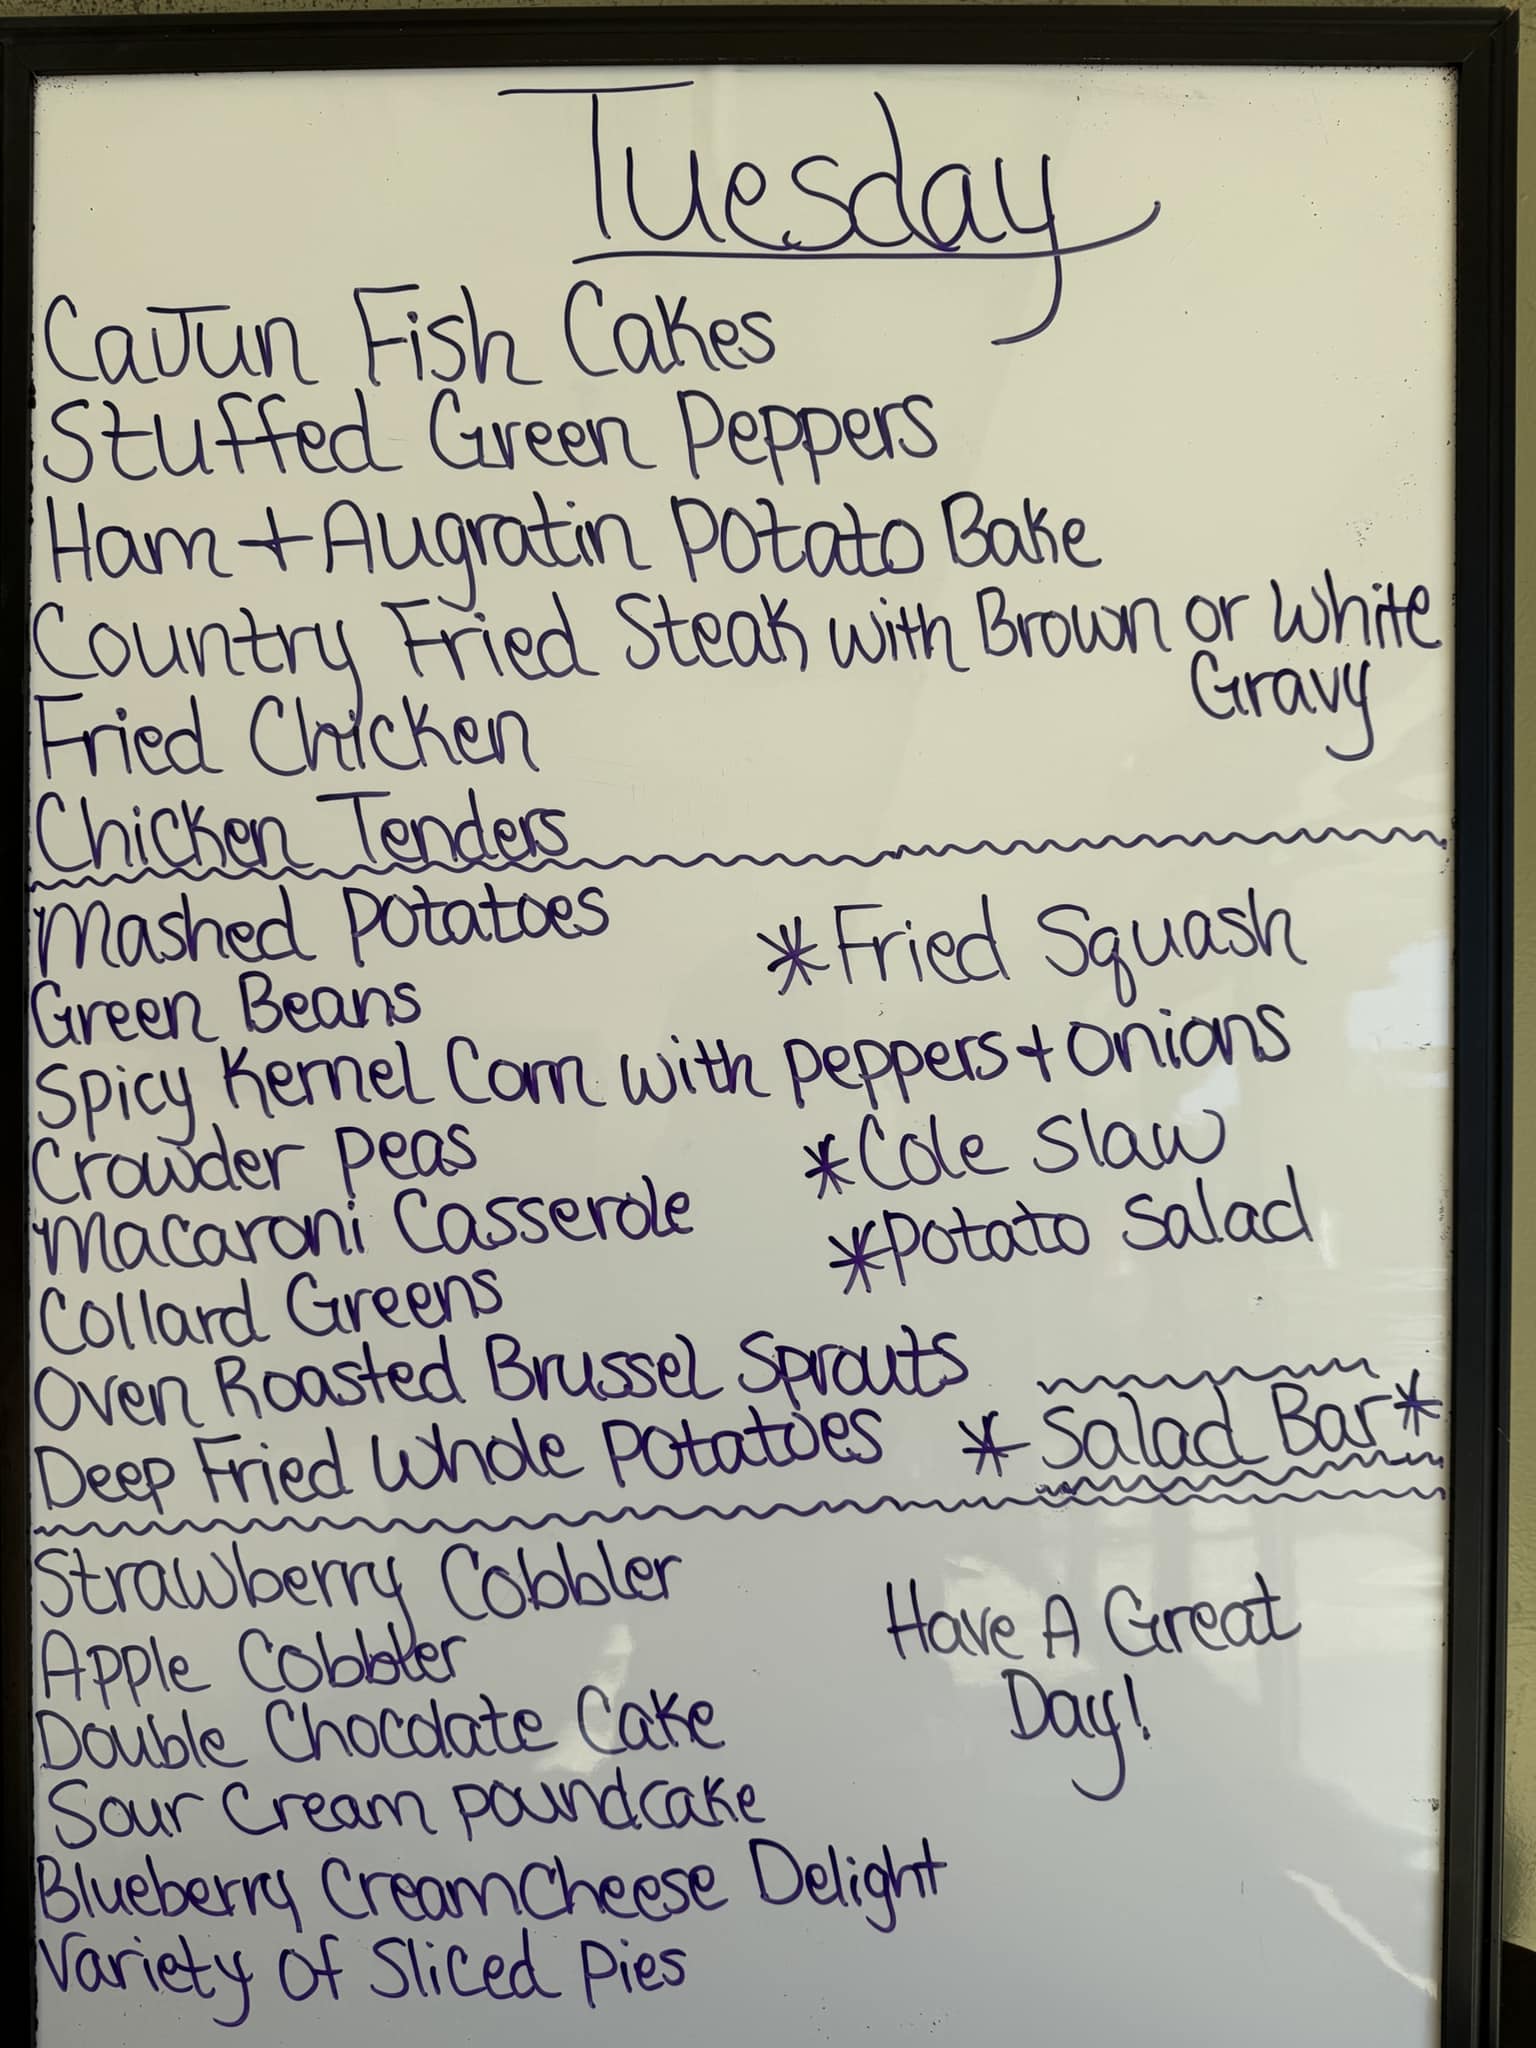 Tuesday
Cajun Fish Cakes
Stuffed Green Peppers
Ham + Augratin Potato Bake
Country Fried Steak with Brown or White
Gravy
Fried Chicken
Chicken Tenders
Mashed Potatoes *Fried Squash
Green Beans
Spicy Kernel Corn with peppers + Onions
Crowder peas *Cole Slaw
Macaroni Casserole *Potato Salad
Collard Greens
Oven Roasted Brussel Sprouts
Deep Fried Whole Potatoes * Salad Bar *
Strawberry Cobbler
Apple Cobbler Have A Great
Double Chocolate Cake Day!
Sour Cream poundcake
Blueberry CreamCheese Delight
Variety Of Sliced Pies